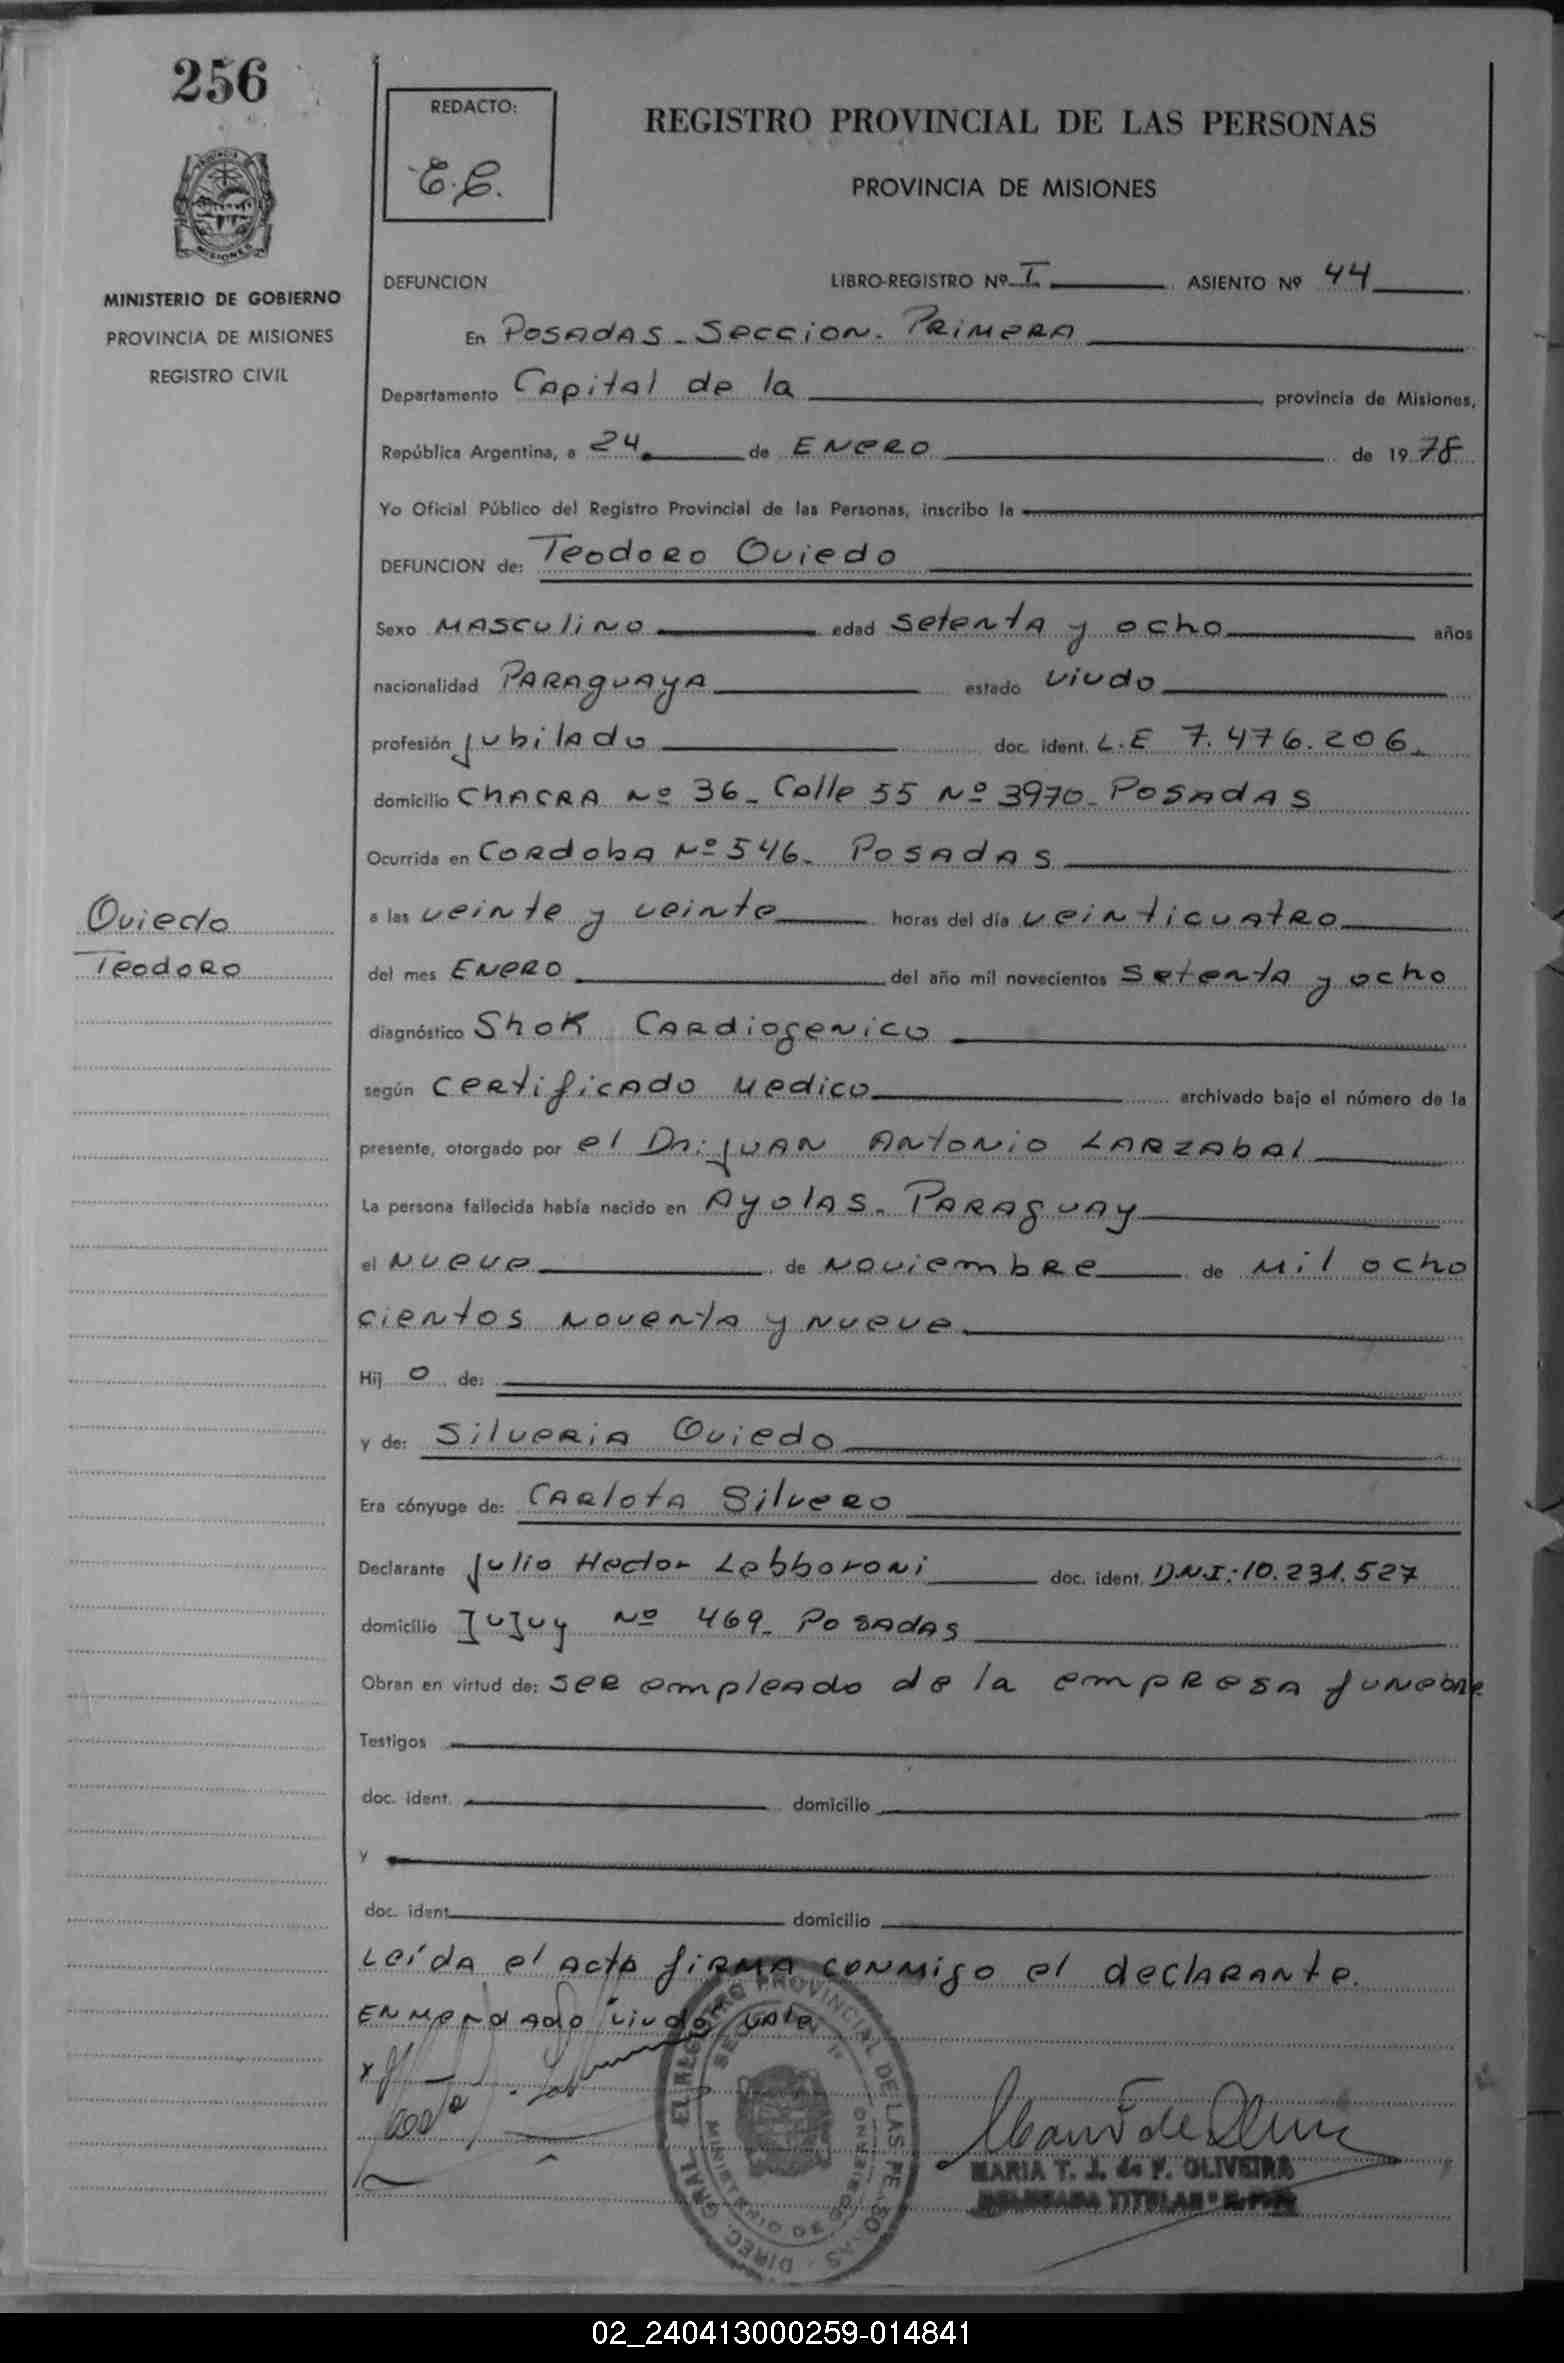 256
REDACTO:
E.C.
REGISTRO PROVINCIAL DE LAS PERSONAS
PROVINCIA DE MISIONES
MISIONES
MINISTERIO DE GOBIERNO
PROVINCIA DE MISIONES
REGISTRO CIVIL
DEFUNCION LIBRO-REGISTRO Nº I ASIENTO Nº 44
En Posadas - Seccion - Primera
Departamento Capital de la provincia de Misiones,
República Argentina, a 24 de Enero de 1978
Yo Oficial Público del Registro Provincial de las Personas, inscribo la
DEFUNCION de: Teodoro Oviedo
Sexo masculino edad setenta y ocho años
nacionalidad Paraguaya estado viudo
profesión jubilado doc. ident. L.E 7.476.206.
domicilio Chacra Nº 36 - Calle 55 Nº 3970 - Posadas
Ocurrida en Cordoba Nº 546. Posadas
a las veinte y veinte horas del día veinticuatro
Oviedo
Teodoro
del mes Enero del año mil novecientos setenta y ocho
diagnóstico Shok Cardiogenico
según certificado medico archivado bajo el número de la
presente, otorgado por el Dr: Juan Antonio Larzabal
La persona fallecida había nacido en Ayolas - Paraguay
el nueve de noviembre de mil ocho
cientos noventa y nueve
Hij o de:
y de: Silveria Oviedo
Era cónyuge de: Carlota Silvero
Declarante Julio Hector Lebboroni doc. ident. D.N.I: 10.231.527
domicilio Jujuy Nº 469 - Posadas
Obran en virtud de: ser empleado de la empresa funebre
Testigos
doc. ident. domicilio
y
doc. ident. domicilio
Leída el acta firma conmigo el declarante.
Enmendado "viudo" vale
DIREC. GRAL. EL REGISTRO PROVINCIAL DE LAS PERSONAS
MINISTERIO DE GOBIERNO
MARIA T. J. de F. OLIVEIRA
DELEGADA TITULAR
02_240413000259-014841